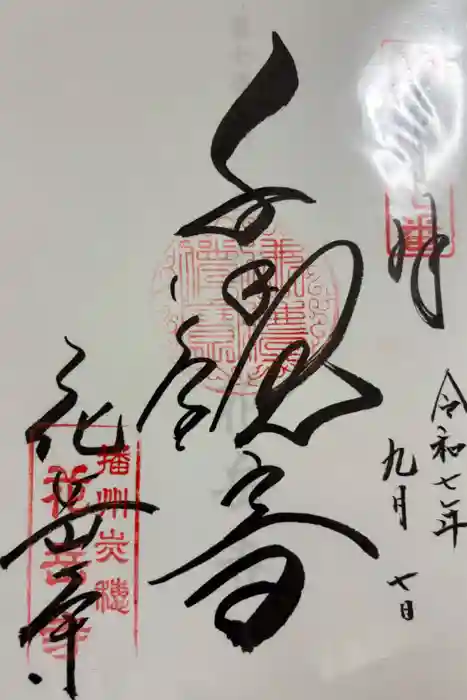 奉拝
令和七年
九月七日
千手観音
花岳寺
播州赤穂
花岳寺